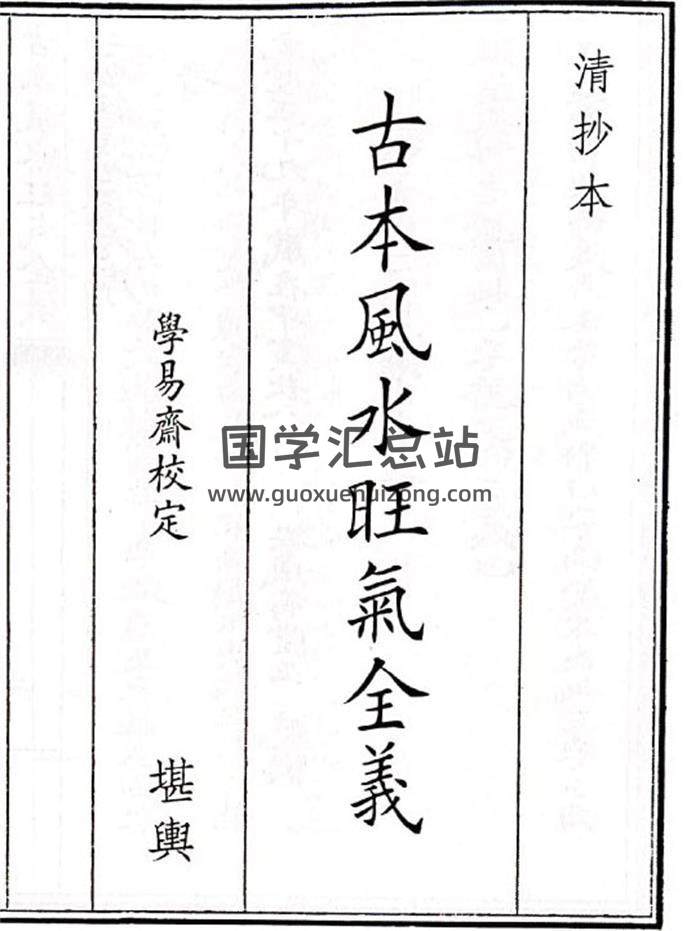 清抄本
古本風水旺氣全義
學易齋校定
堪輿
国学汇总站
www.guoxuehuizong.com